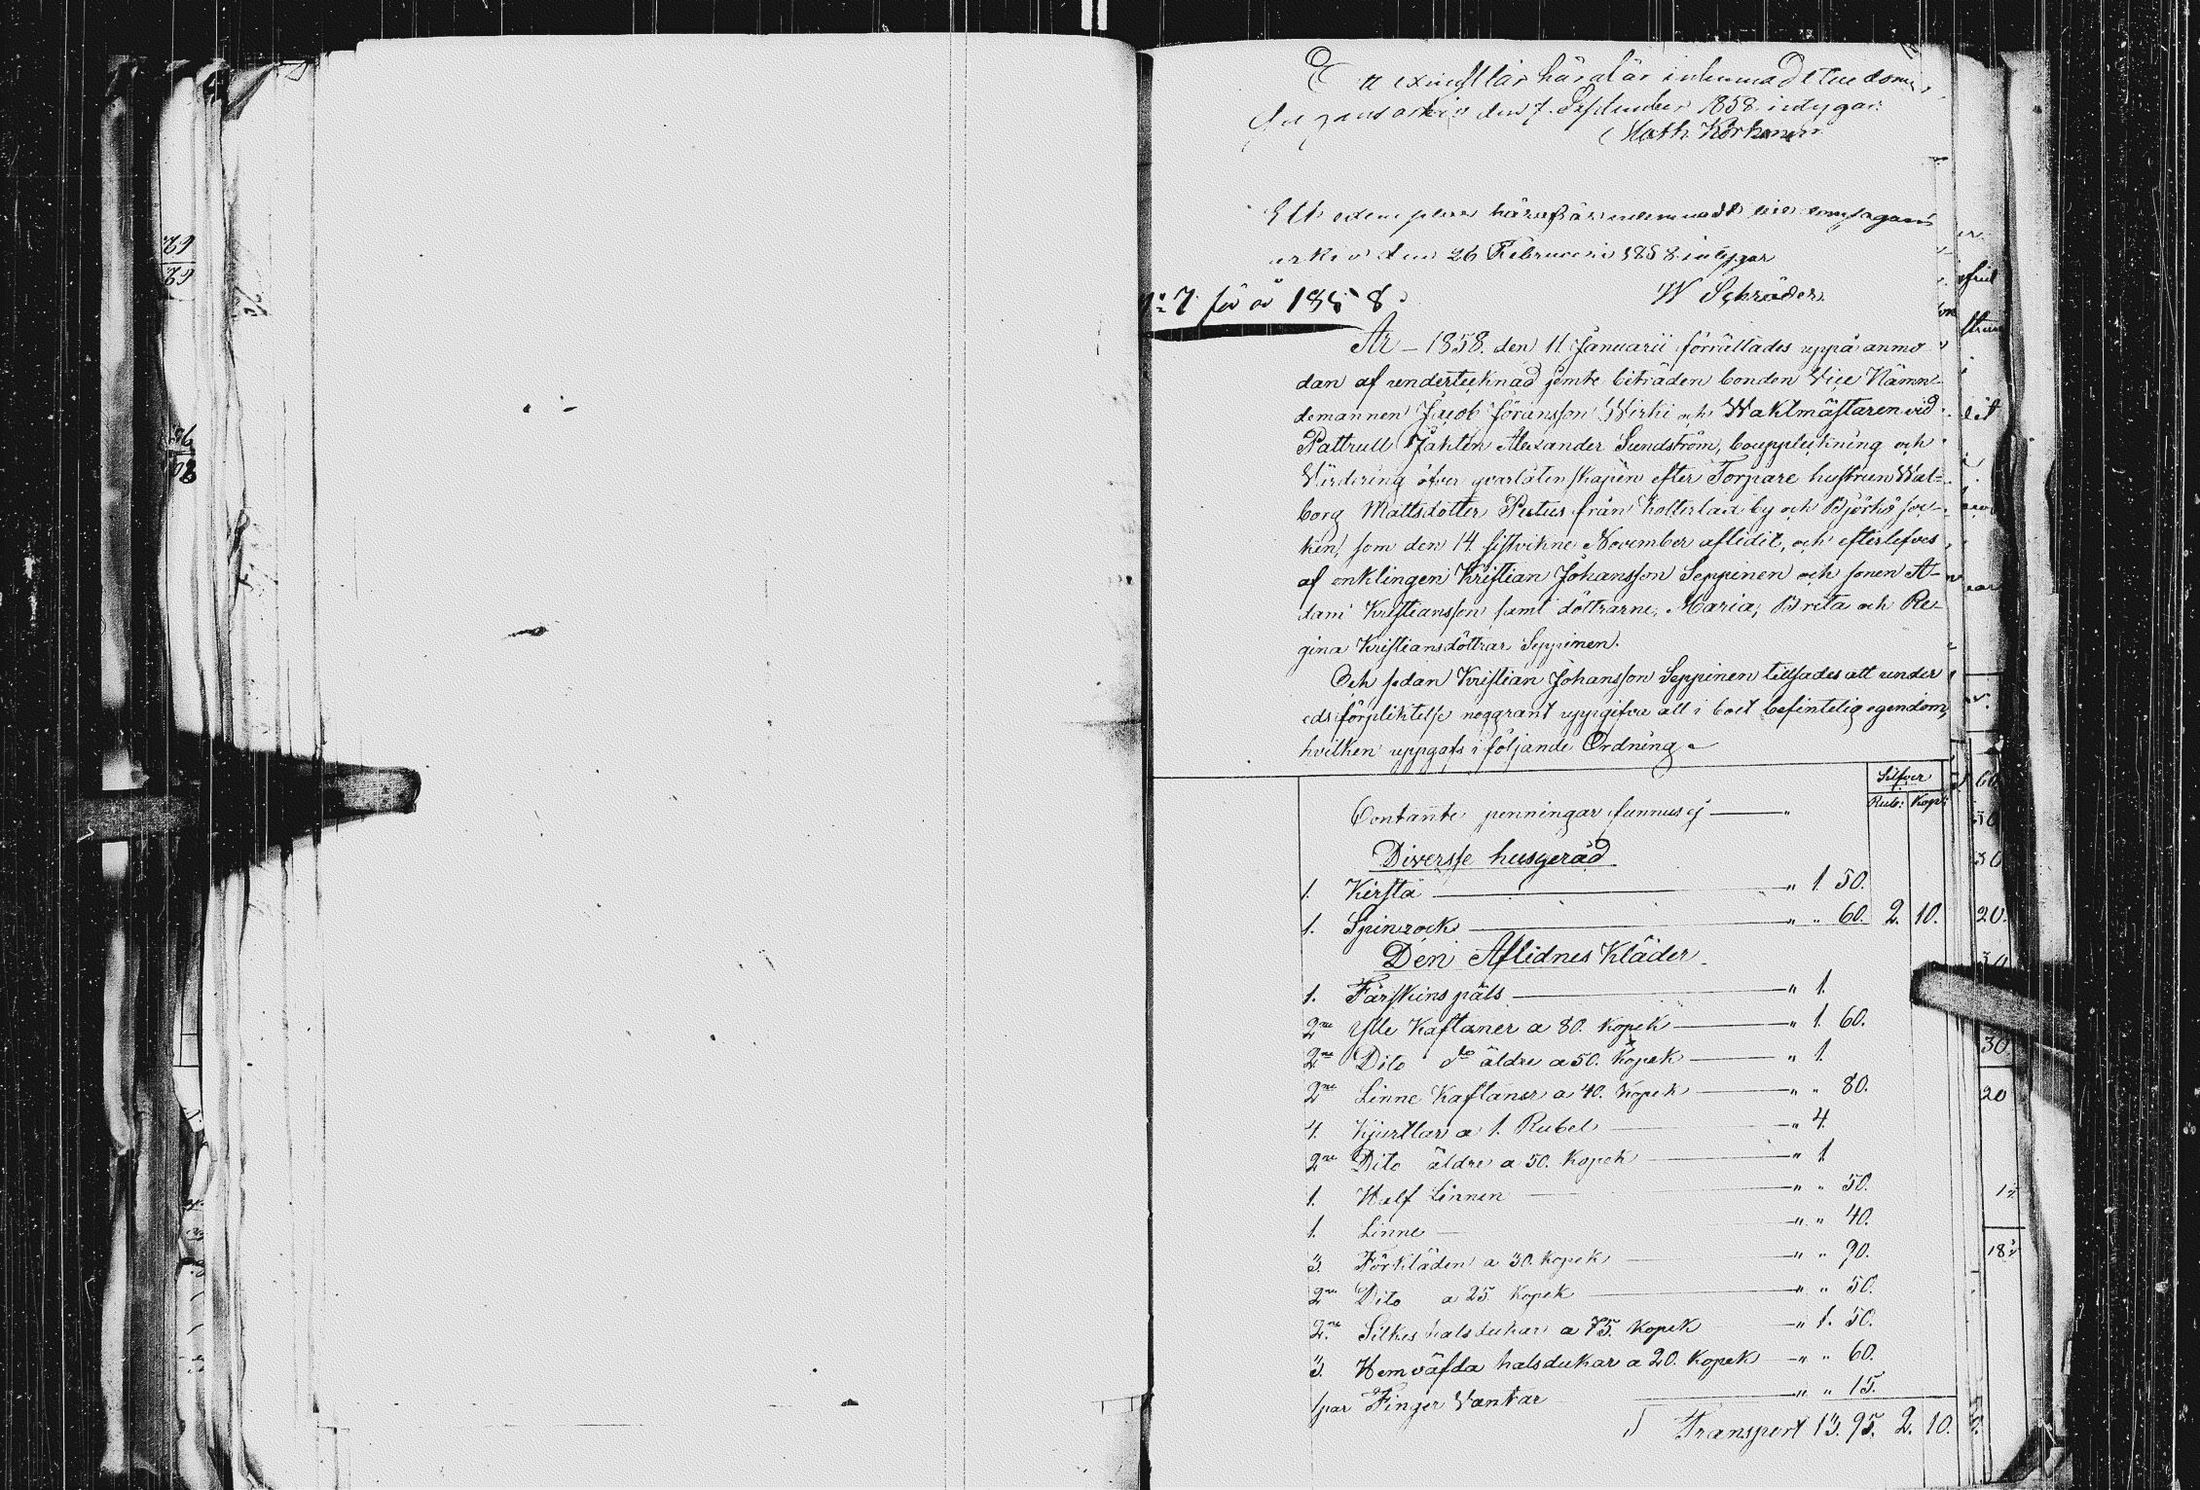 En exemplar häraf är inlemnadt
den 7. September 1858. intygar
Math Körhonen
Ett exemplar häraf är inlemnadt
arkiv den 26 Februari 1858 intygar
W Schröder
No 7 för år 1858.
År 1858. den 11 Januarii förrättades uppå anmo-
dan af undertecknad jemte biträden bonden Vice Nämn-
demannen Jacob Jöransson Wirki och Waktmästaren vid
Pattrull Jakten Alexander Sundström, bouppteckning och
Värdering öfver qvarlåtenskapen efter Torpare hustrun Wal-
borg Mattsdotter Putus från Kolterlax by och Björkö soc-
ken, som den 14 sistvikne November aflidit, och efterlefves
af enklingen Kristian Johansson Seppinen och sonen A-
dam Kristiansson samt döttrarne, Maria, Brita och Re-
gina Kristiansdöttrar Seppinen.
Och sedan Kristian Johansson Seppinen tillsades att under
eds förpliktelse noggrant uppgifva all i boet befintelig egendom,
hvilken uppgafs i följande Ordning
Silfver
Rub: Kop:
Contante penningar funnus ej — "
Diversse husgeråd
1. Kersta — " 1. 50.
1. Spinrock — " " 60. 2. 10.
Den Aflidnes Kläder
1. Fårskins päls — " 1.
2ne Ylle Kaftaner a 80. Kopek — " 1. 60.
2ne Dito do äldre a 50. Kopek — " 1.
2ne Linne Kaftaner a 40. Kopek — " " 80.
4. Kjurtlar a 1. Rubel — " 4.
2ne Dito äldre a 50. Kopek — " 1
1. Half Linnen — " " 50.
1. Linne — " " 40.
3. Förkläden a 30. Kopek — " " 90.
2ne Dito a 25 Kopek — " " 50.
2ne Silkes halsdukar a 75. Kopek — " 1. 50.
3. Hemväfda halsdukar a 20. Kopek — " " 60.
1 par Finger Vantar — " " 15.
Transport 13. 95. 2. 10.